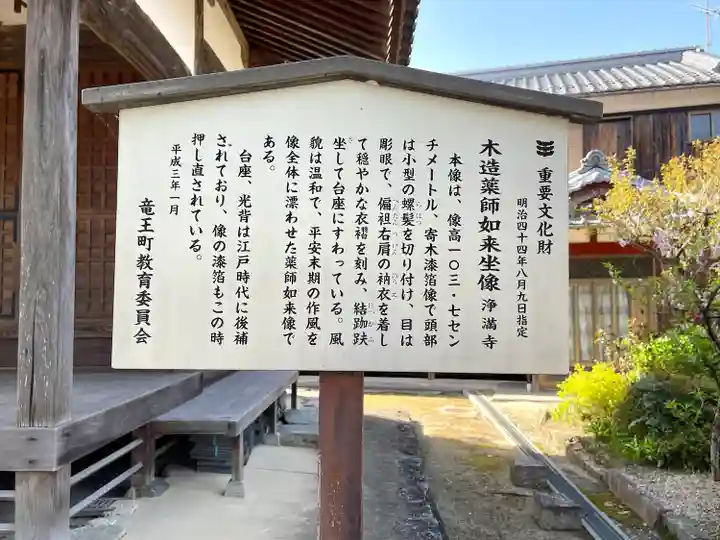 重要文化財
明治四十四年八月九日指定
木造薬師如来坐像 浄満寺
本像は、像高一〇三・七セン
チメートル、寄木漆箔像で頭部
は小型の螺髪を切り付け、目は
彫眼で、偏袒右肩の衲衣を着し
て穏やかな衣褶を刻み、結跏趺
坐して台座にすわっている。風
貌は温和で、平安末期の作風を
像全体に漂わせた薬師如来像で
ある。
台座、光背は江戸時代に後補
されており、像の漆箔もこの時
押し直されている。
平成三年一月
竜王町教育委員会